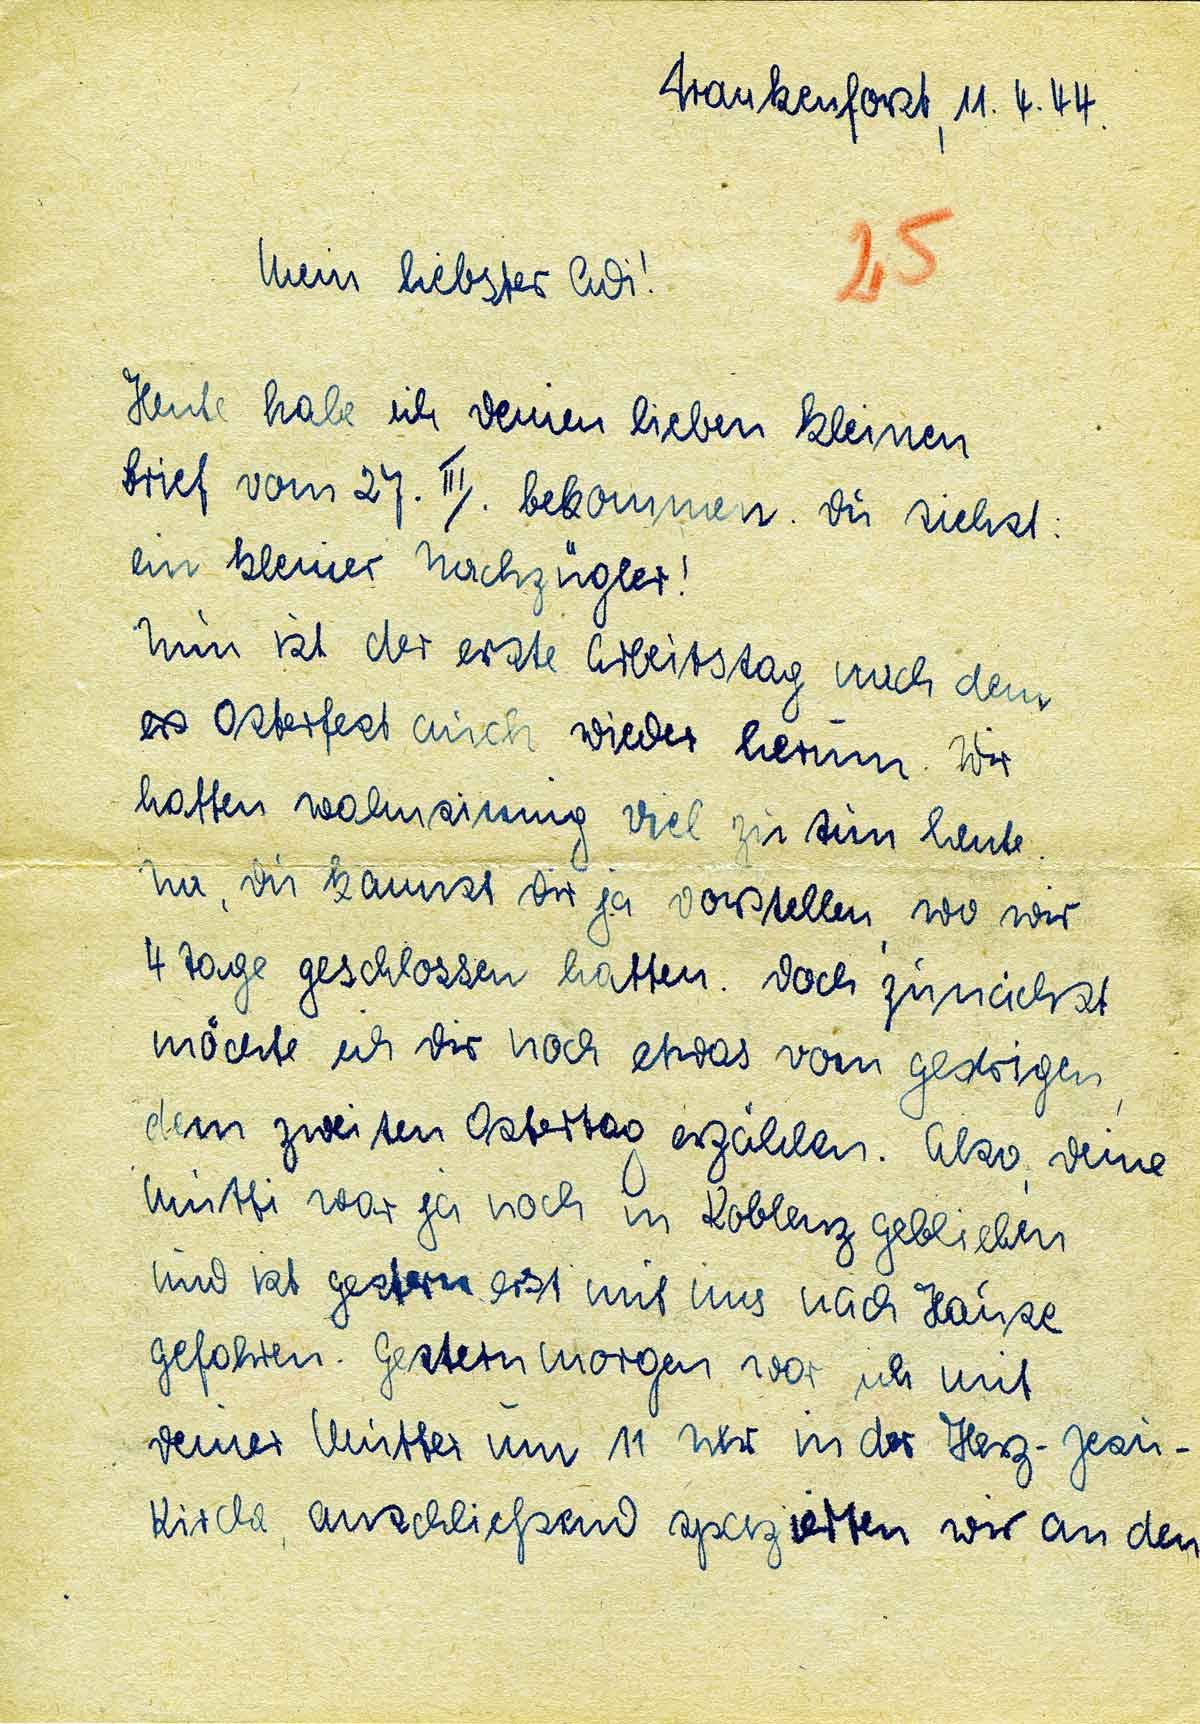 Frankenforst, 11.4.44.
25
Mein liebster Adi!
Heute habe ich deinen lieben kleinen
Brief vom 27. III. bekommen. Du siehst:
ein kleiner Nachzügler!
Nun ist der erste Arbeitstag nach dem
Osterfest auch wieder herum. Wir
hatten wahnsinnig viel zu tun heute.
Na, du kannst dir ja vorstellen, wo wir
4 Tage geschlossen hatten. Doch zunächst
möchte ich dir noch etwas vom gestrigen,
dem zweiten Ostertag erzählen. Also, deine
Mutti war ja noch in Koblenz geblieben
und ist gestern erst mit uns nach Hause
gefahren. Gestern morgen war ich mit
deiner Mutter um 11 Uhr in der Herz-Jesu-
Kirche, anschließend spazierten wir an den